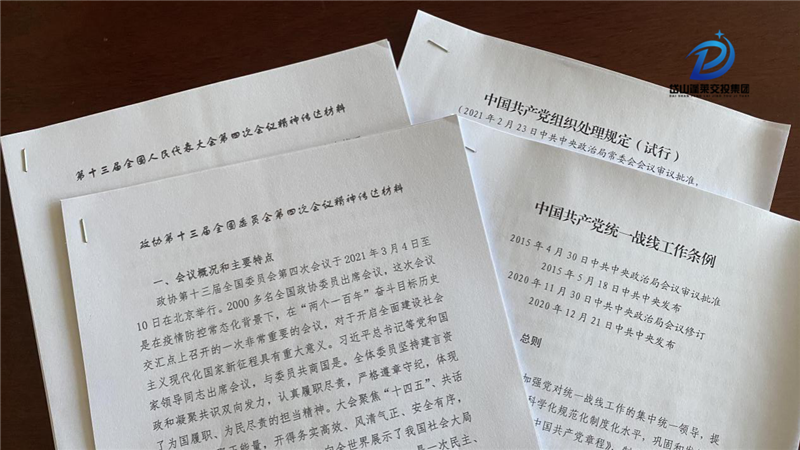 岱山蓬莱交投集团
第十三届全国人民代表大会第四次会议精神传达材料
中国共产党组织处理规定（试行）
（2021年2月23日中共中央政治局常委会会议审议批准，
政协第十三届全国委员会第四次会议精神传达材料
一、会议概况和主要特点
政协第十三届全国委员会第四次会议于2021年3月4日至
10日在北京举行。2000多名全国政协委员出席会议，这次会议
是在疫情防控常态化背景下，在“两个一百年”奋斗目标历史
交汇点上召开的一次非常重要的会议，对于开启全面建设社会
主义现代化国家新征程具有重大意义。习近平总书记等党和国
家领导同志出席会议，与委员共商国是。全体委员坚持建言资
政和凝聚共识双向发力，认真履职尽责，严格遵章守纪，体现
了为国履职、为民尽责的担当精神。大会聚焦“十四五”、共话
正能量，开得务实高效、风清气正、安全有序，
向全世界展示了我国社会大局
是一次民主、
中国共产党统一战线工作条例
2015年4月30日中共中央政治局会议审议批准
2015年5月18日中共中央发布
2020年11月30日中共中央政治局会议修订
2020年12月21日中共中央发布
总则
加强党对统一战线工作的集中统一领导，提
科学化规范化制度化水平，巩固和发
中国共产党章程》，制